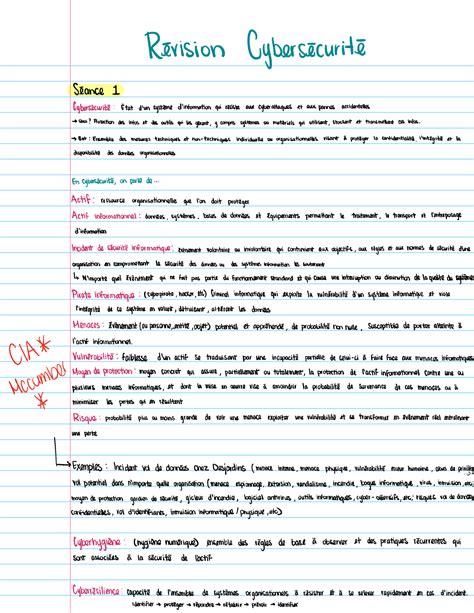 Révision Cybersécurité
Séance 1
Cybersécurité : État d'un système d'information qui résiste aux cyberattaques et aux pannes accidentelles
→ Quoi ? Protection des infos et des outils qui les gèrent, y compris systèmes ou matériels qui utilisent, stockent et transmettent ces infos.
→ But : Ensemble des mesures techniques et non-techniques individuelle ou organisationnelles visant à protéger la confidentialité, l'intégrité et la
disponibilité des données organisationnelles
En cybersécurité, on parle de...
Actif : ressource organisationnelle que l'on doit protéger
Actif informationnel : données, systèmes, bases de données et équipements permettant le traitement, le transport et l'entreposage
d'information
Incident de sécurité informatique : évènement volontaire ou involontaire qui contrevient aux objectifs, aux règles et aux normes de sécurité d'une
organisation en compromettant la sécurité des données ou des systèmes information
↳ N'importe quel évènement qui ne fait pas partie du fonctionnement standard et qui cause une interruption ou diminution de la qualité du système
Pirate informatique : (cyberpirate, hacker, etc) Criminel informatique qui exploite la vulnérabilité d'un système informatique et viole
l'intégrité de ce système en volant, détruisant, altérant les données
Menaces : Évènement (ou personne, entité, objet) potentiel et appréhendé, de probabilité non nulle, susceptible de porter atteinte à
l'actif informationnel.
Vulnérabilité : faiblesse d'un actif se traduisant par une incapacité partielle de celui-ci à faire face aux menaces informatiques
Moyen de protection : moyen concret qui assure, partiellement ou totalement, la protection de l'actif informationnel contre une ou
plusieurs menaces informatiques, et dont la mise en œuvre vise à amoindrir la probabilité de survenance de ces menaces ou à
minimiser les pertes qui en résultent
Risque : probabilité plus ou moins grande de voir une menace exploiter une vulnérabilité et se transformer en évènement réel entraînant
une perte
CIA *
Mccumber
*
→ Exemples : Incident vol de données chez Desjardins (menace interne, menace physique, vulnérabilité erreur humaine, abus de privilège
vol potentiel dans n'importe quelle organisation (menace espionnage, extorsion, vandalisme, incendie, bogue informatique, virus, intrusion, etc)
moyen de protection gardien de sécurité, gicleur d'incendie, logiciel antivirus, outils informatiques, cyber-offensifs, etc; risques vol de données
confidentielles, vol d'identifiants, intrusion informatique / physique, etc)
Cyberhygiène : (hygiène numérique) ensemble des règles de base à observer et des pratiques récurrentes qui
sont associées à la sécurité de l'actif
Cyberrésilience : capacité de l'ensemble de systèmes organisationnels à résister et à se relever rapidement en cas d'incident.
identifier → protéger → répondre → rétablir → prévoir → identifier